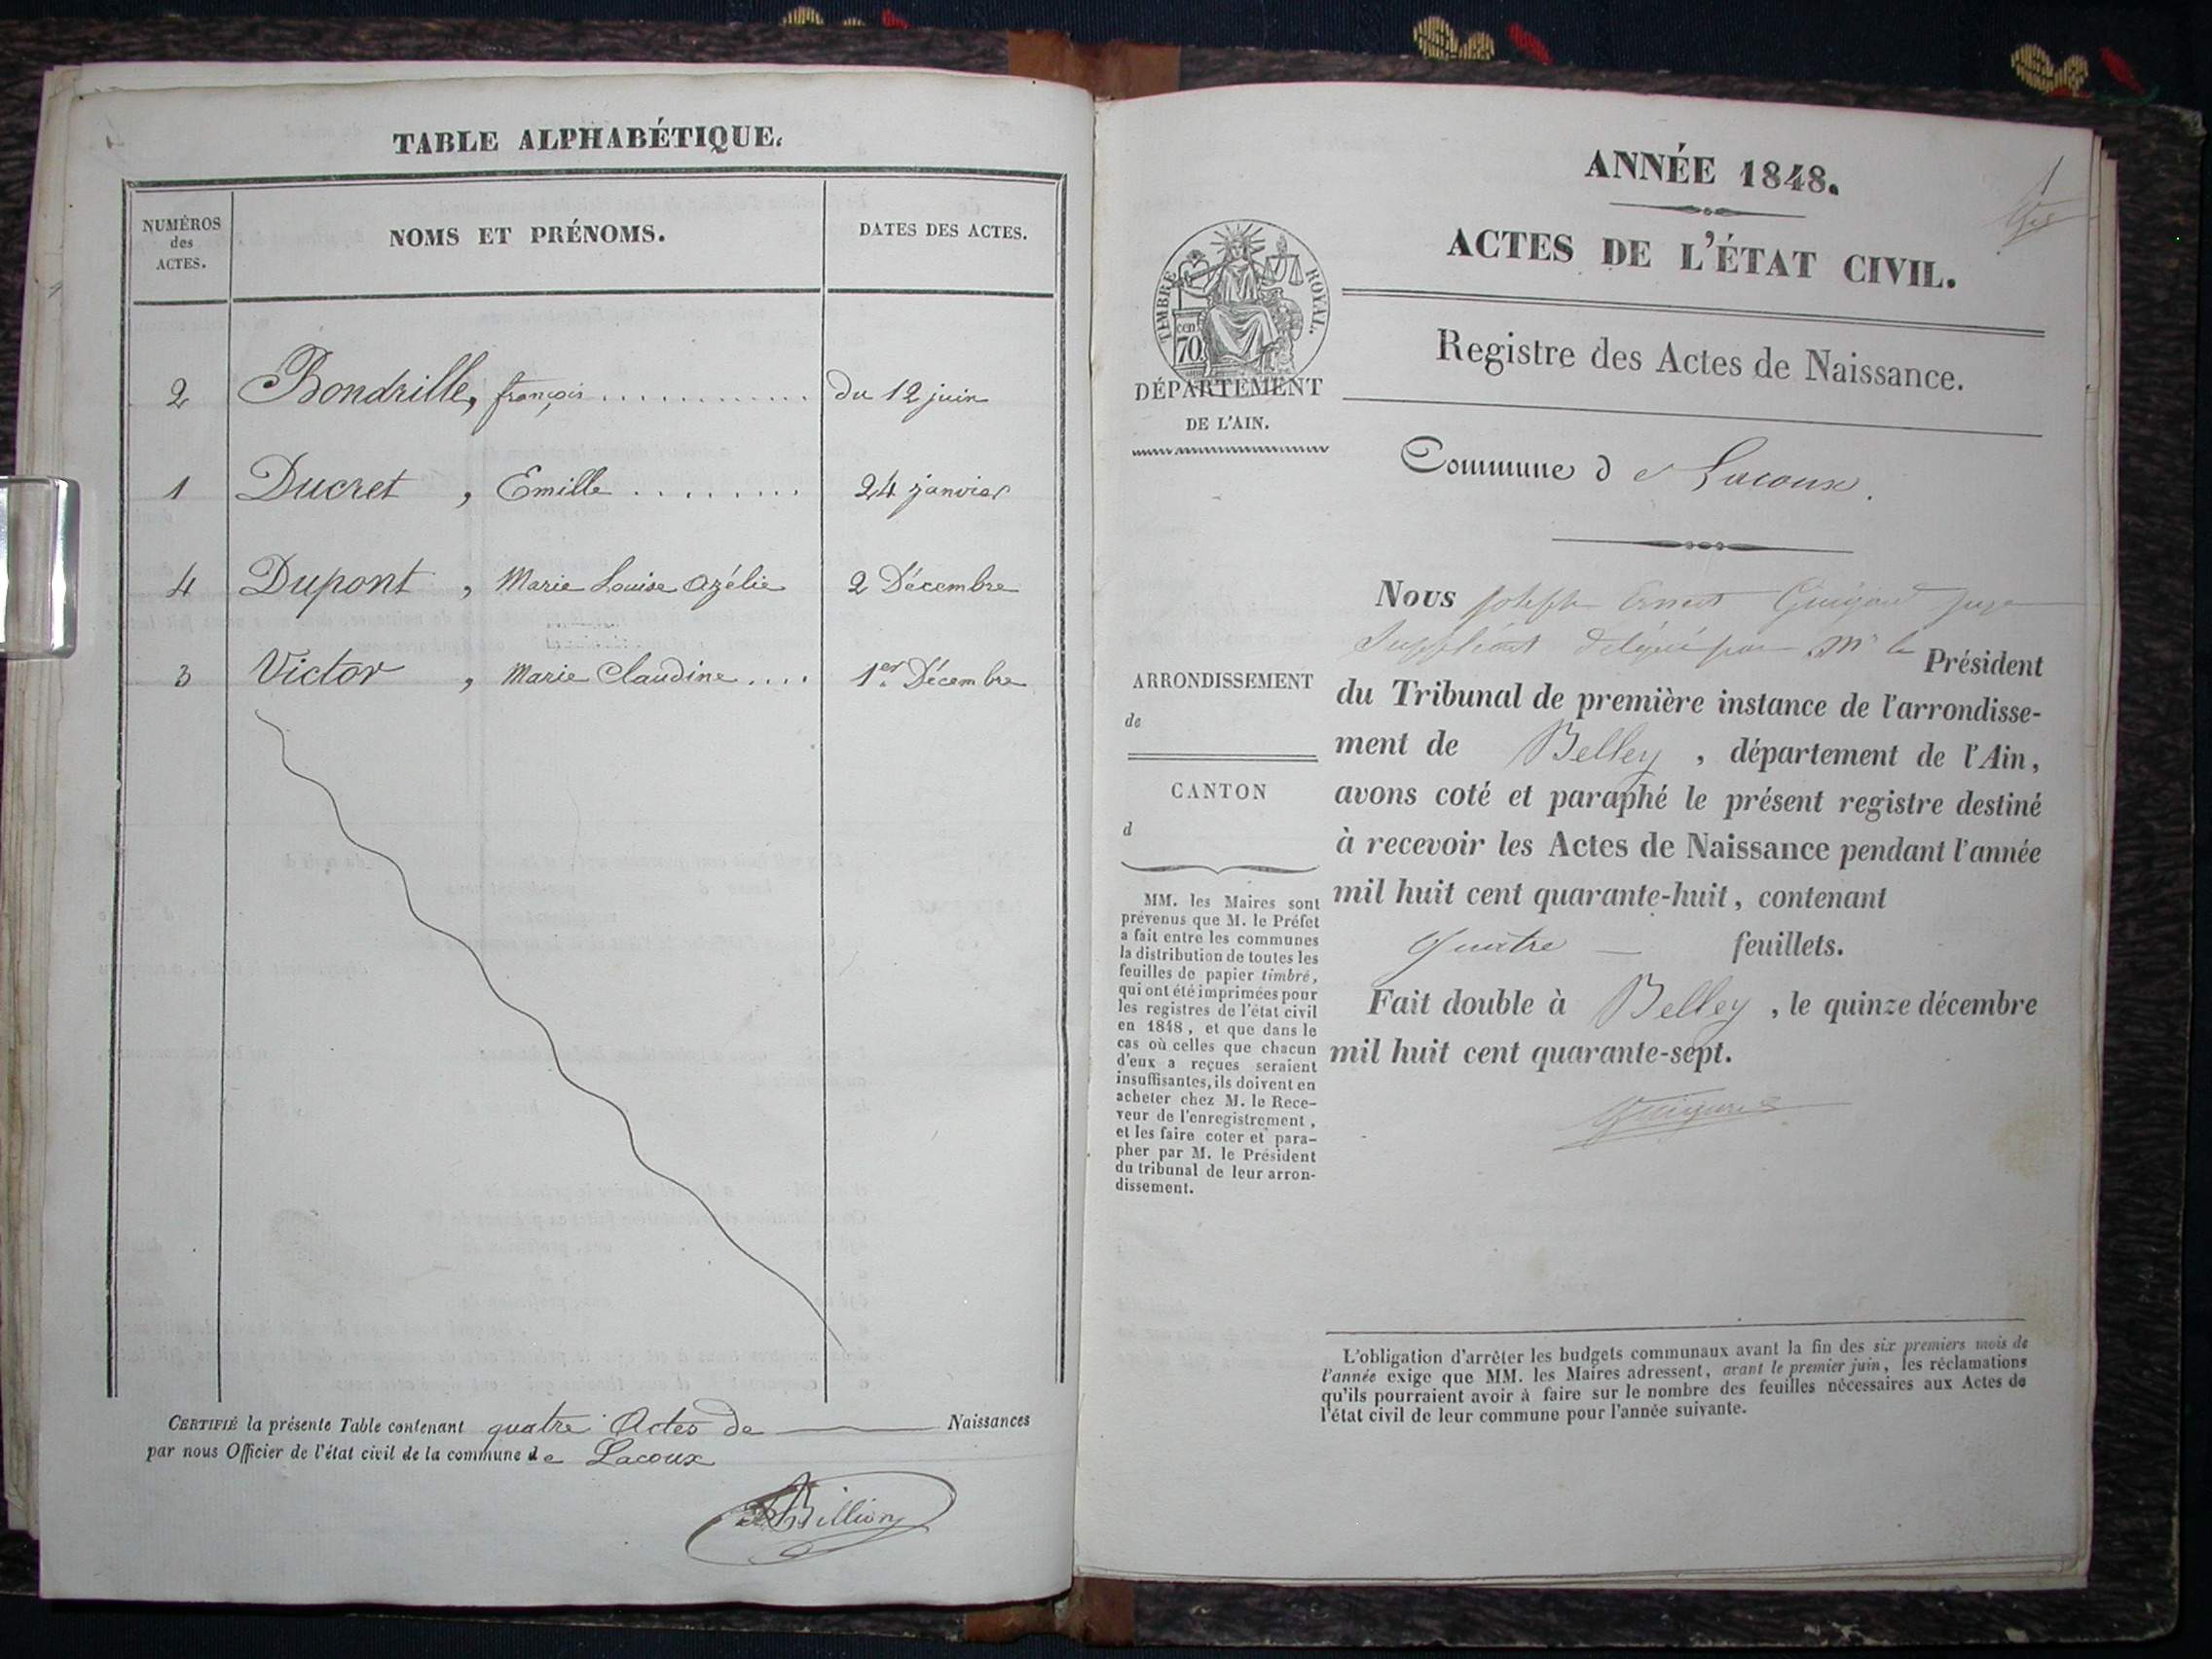 TABLE ALPHABÉTIQUE.
NUMÉROS
des
ACTES.
NOMS ET PRÉNOMS.
DATES DES ACTES.
2 Bondrille, françois ............ Du 12 juin
1 Ducret , Emille ......... 24 janvier
4 Dupont , Marie Louise Azélie 2 Décembre
3 Victor , Marie Claudine .... 1er Décembre
CERTIFIÉ la présente Table contenant quatre Actes de Naissances
par nous Officier de l'état civil de la commune de Lacoux
Billion
ANNÉE 1848.
1
ACTES DE L'ÉTAT CIVIL.
TIMBRE ROYAL.
cen.
70
Registre des Actes de Naissance.
DÉPARTEMENT
DE L'AIN.
Commune de Lacoux.
Nous Joseph Ernest juge
Suppléant délégué par Mr le Président
du Tribunal de première instance de l'arrondisse-
ment de Belley , département de l'Ain,
avons coté et paraphé le présent registre destiné
à recevoir les Actes de Naissance pendant l'année
mil huit cent quarante-huit, contenant
quatre — feuillets.
Fait double à Belley , le quinze décembre
mil huit cent quarante-sept.
ARRONDISSEMENT
de
CANTON
d
MM. les Maires sont
prévenus que M. le Préfet
a fait entre les communes
la distribution de toutes les
feuilles de papier timbré,
qui ont été imprimées pour
les registres de l'état civil
en 1848, et que dans le
cas où celles que chacun
d'eux a reçues seraient
insuffisantes, ils doivent en
acheter chez M. le Rece-
veur de l'enregistrement,
et les faire coter et para-
pher par M. le Président
du tribunal de leur arron-
dissement.
L'obligation d'arrêter les budgets communaux avant la fin des six premiers mois de
l'année exige que MM. les Maires adressent, avant le premier juin, les réclamations
qu'ils pourraient avoir à faire sur le nombre des feuilles nécessaires aux Actes de
l'état civil de leur commune pour l'année suivante.